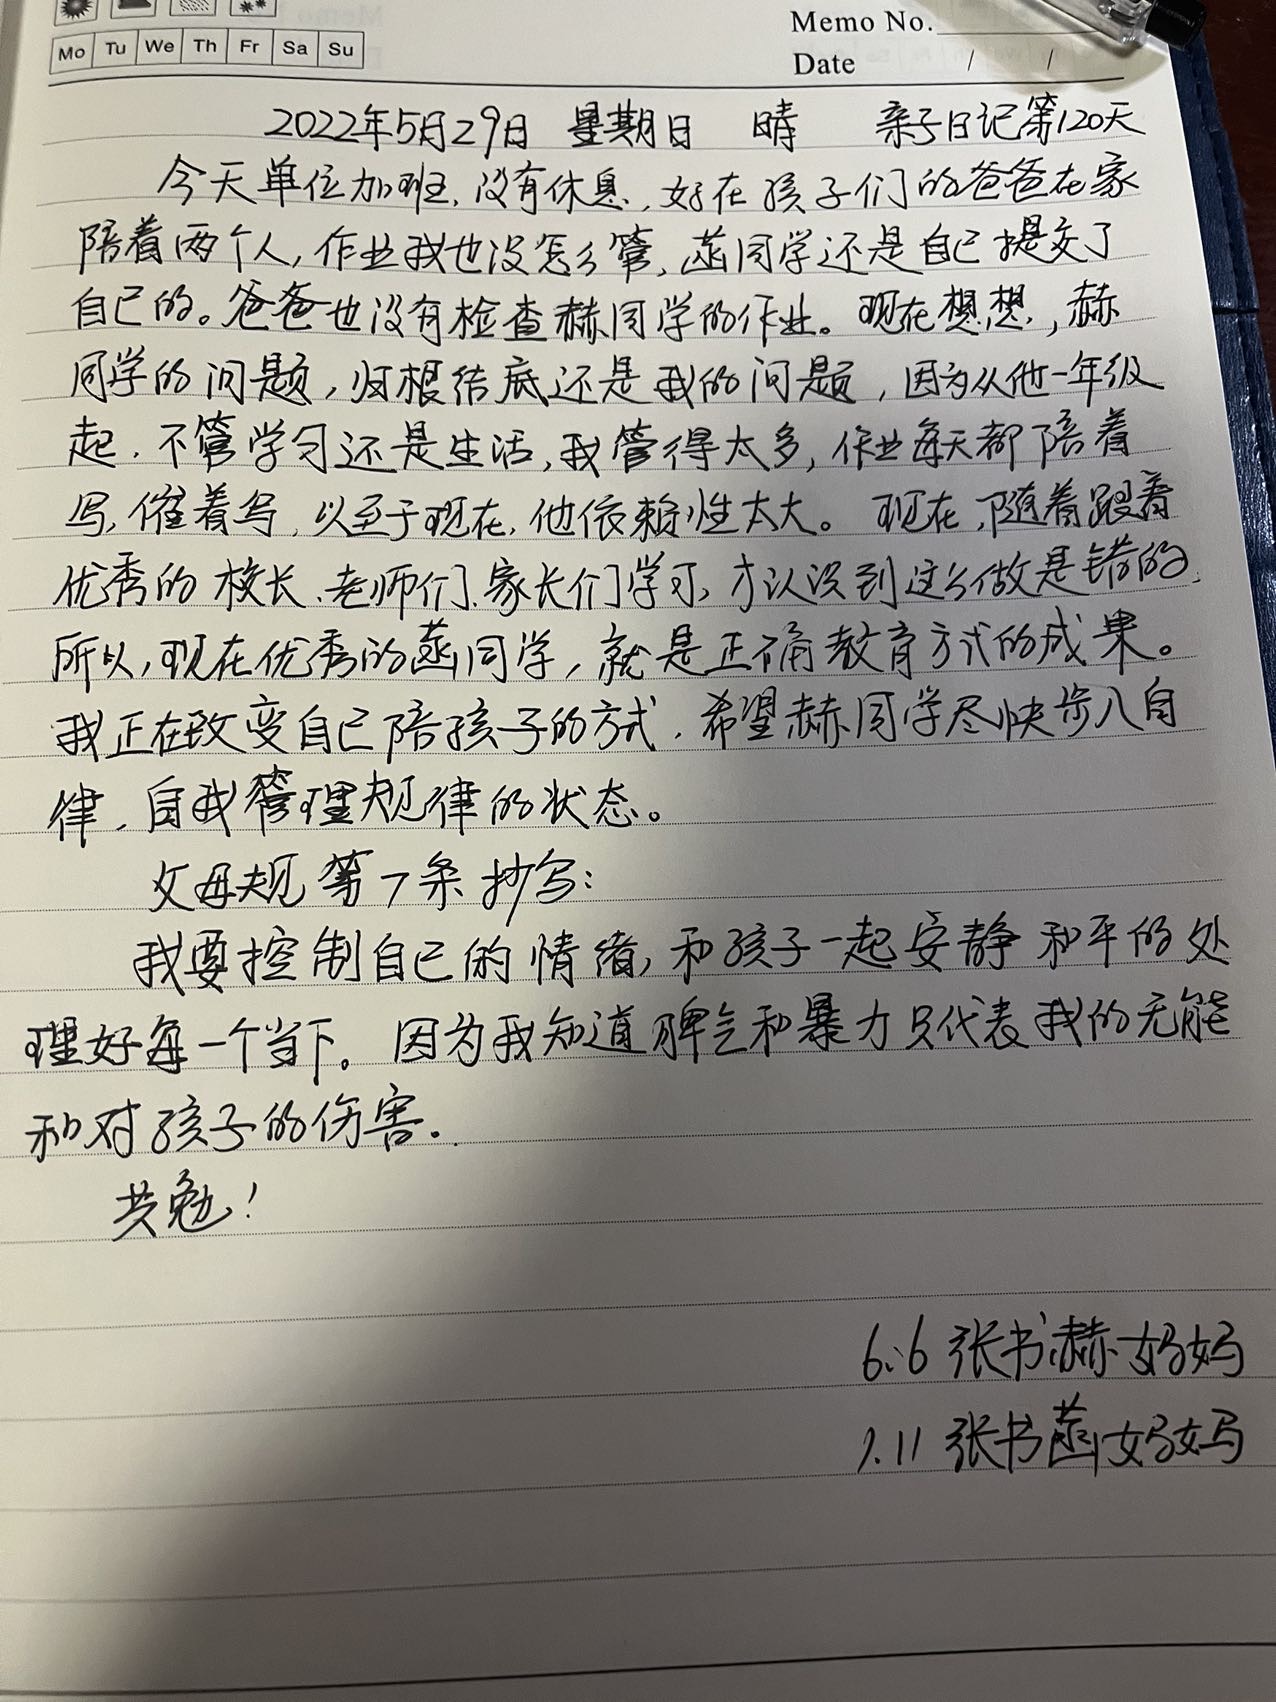 Memo No.
Mo Tu We Th Fr Sa Su
Date / /
2022年5月29日 星期日 晴 亲子日记第120天
今天单位加班,没有休息,好在孩子们的爸爸在家
陪着两个人,作业我也没怎么管,菡同学还是自己提交了
自己的。爸爸也没有检查赫同学的作业。现在想想,赫
同学的问题,归根结底还是我的问题,因为从他一年级
起,不管学习还是生活,我管得太多,作业每天都陪着
写,催着写,以至于现在,他依赖性太大。现在,随着跟着
优秀的校长、老师们、家长们学习,才认识到这么做是错的,
所以,现在优秀的菡同学,就是正确教育方式的成果。
我正在改变自己陪孩子的方式,希望赫同学尽快步入自
律,自我管理规律的状态。
父母规第7条抄写:
我要控制自己的情绪,和孩子一起安静和平的处
理好每一个当下。因为我知道脾气和暴力只代表我的无能
和对孩子的伤害.
共勉!
6.6 张书赫妈妈
1.11 张书菡妈妈